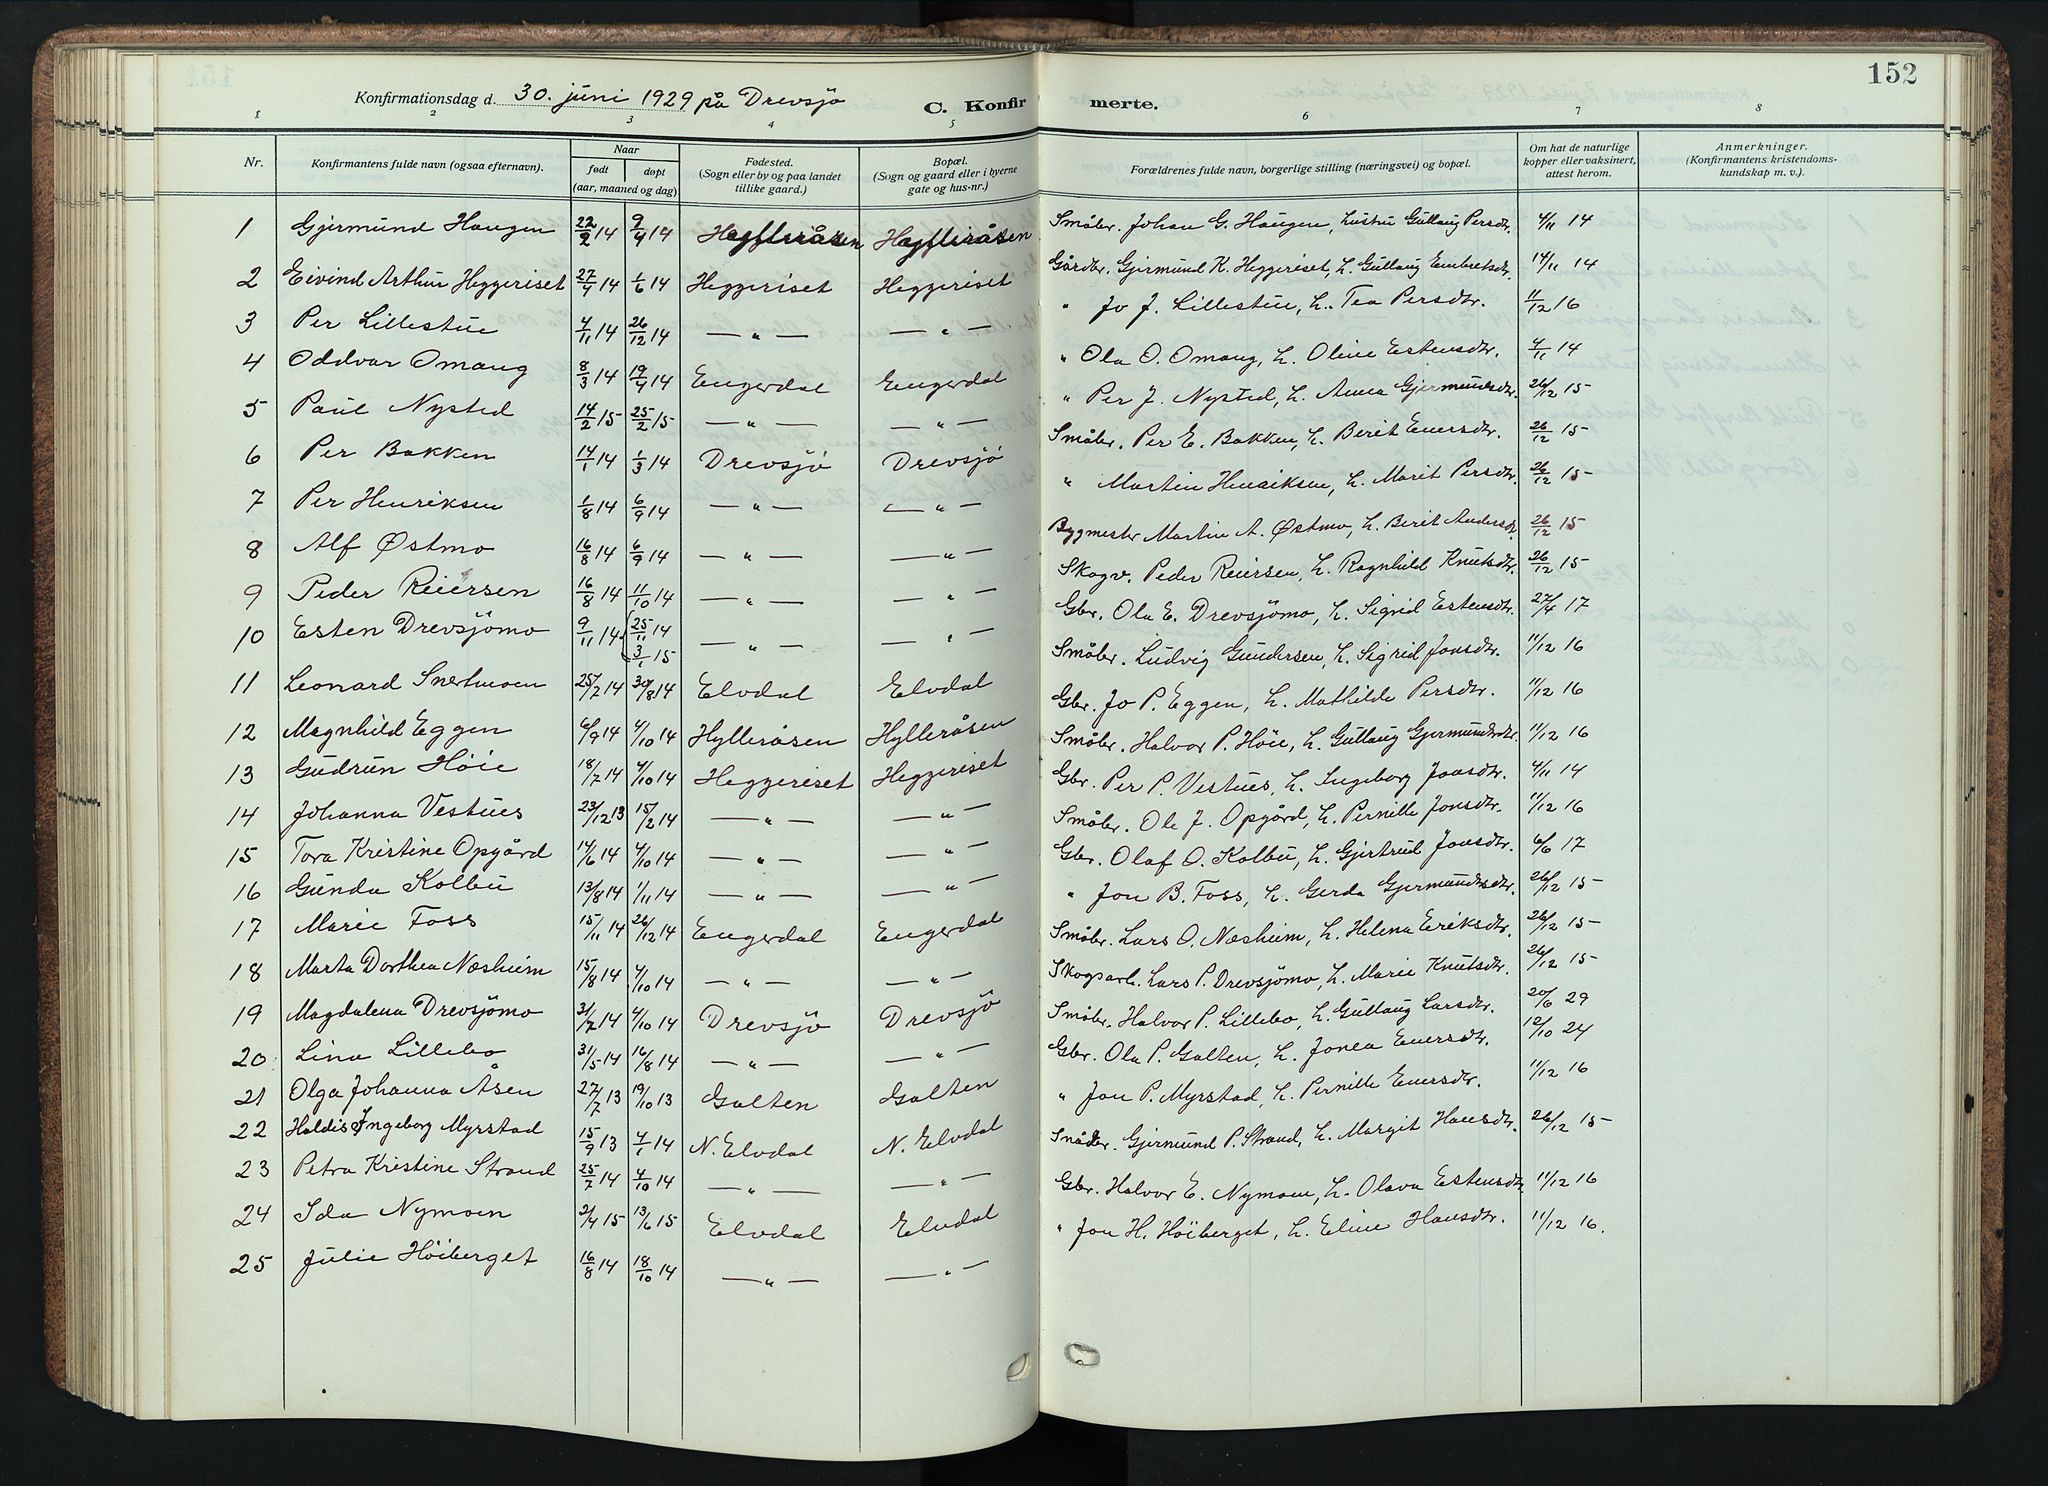 152
Konfirmationsdag d. 30. juni 1929 på Drevsjø
C. Konfirmerte.
1 2 3 4 5 6 7 8
Nr. Konfirmantens fulde navn (ogsaa efternavn). Naar født døpt (aar, maaned og dag) Fødested. (Sogn eller by og paa landet tillike gaard.) Bopæl. (Sogn og gaard eller i byerne gate og hus-nr.) Forældrenes fulde navn, borgerlige stilling (næringsvei) og bopæl. Om hat de naturlige kopper eller vaksinert, attest herom. Anmerkninger. (Konfirmantens kristendomskundskap m. v.).
1 Gjermund Haugen 22/2 14 9/4 14 Småbr. Johan G. Haugen, hustru Gullaug Persdtr. 4/11 14
2 Eivind Arthur Heggeriset 27/4 14 1/6 14 Heggeriset Heggeriset Gårdbr. Gjermund K. Heggeriset, h. Gullaug Embretsdtr. 14/11 14
3 Per Lillestue 4/11 14 26/12 14 — " — — " — " Jo J. Lillestue, h. Tea Persdtr. 11/12 16
4 Oddvar Omang 8/3 14 19/4 14 Engerdal Engerdal " Ola O. Omang, h. Oline Estensdtr. 4/11 14
5 Paul Nysted 14/2 15 25/2 15 — " — — " — " Per J. Nysted, h. Anna Gjermundsdtr. 26/12 15
6 Per Bakken 14/1 14 1/3 14 Drevsjö Drevsjö Småbr. Per E. Bakken, h. Berit Enersdtr. 26/12 15
7 Per Henriksen 1/8 14 6/9 14 — " — — " — " Martin Henriksen, h. Marit Persdtr. 26/12 15
8 Alf Østmo 16/8 14 6/9 14 — " — — " — Bygmester Martin A. Østmo, h. Berit Andersdtr. 26/12 15
9 Peder Reiersen 16/8 14 11/10 14 — " — — " — Skogv. Peder Reiersen, h. Ragnhild Knutsdtr. 26/12 15
10 Esten Drevsjömo 9/11 14 25/11 14 3/1 15 — " — — " — Gbr. Ola E. Drevsjömo, h. Sigrid Estensdtr. 27/4 17
11 Leonard Snertmoen 25/7 14 30/8 14 Elvdal Elvdal Småbr. Ludvig Gundersen, h. Sigrid Jonsdtr. 11/12 16
12 Magnhild Eggen 6/9 14 4/10 14 Hylleråsen Hylleråsen Gbr. Jo P. Eggen, h. Mathilde Persdtr. 11/12 16
13 Gudrun Höie 18/7 14 4/10 14 Heggeriset Heggeriset Småbr. Halvor P. Höie, h. Gullaug Gjermundsdtr. 11/12 16
14 Johanna Vestues 23/12 13 15/2 14 — " — — " — Gbr. Per P. Vestues, h. Ingeborg Jonsdtr. 4/11 14
15 Tora Kristine Opgård 14/6 14 4/10 14 — " — — " — Småbr. Ole J. Opgård, h. Pernille Jonsdtr. 11/12 16
16 Gunda Kolbu 13/8 14 1/11 14 — " — — " — Gbr. Olaf O. Kolbu, h. Gjertrud Jonsdtr. 6/6 17
17 Marie Foss 15/11 14 26/12 14 Engerdal Engerdal " Jon B. Foss, h. Gerda Gjermundsdtr. 26/12 15
18 Marta Dorthea Næsheim 15/8 14 4/10 14 — " — — " — Småbr. Lars O. Næsheim, h. Helena Eriksdtr. 26/12 15
19 Magdalena Drevsjömo 31/7 14 4/10 14 Drevsjö Drevsjö Skogsarb. Lars P. Drevsjömo, h. Marie Knutsdtr. 26/12 15
20 Lina Lillebo 31/5 14 16/8 14 — " — — " — Småbr. Halvor P. Lillebo, h. Gullaug Larsdtr. 20/6 29
21 Olga Johanna Åsen 27/7 13 19/10 13 Galten Galten Gbr. Ola P. Galten, h. Jonea Enersdtr. 12/10 24
22 Haldis Ingeborg Myrstad 15/9 13 4/1 14 N. Elvdal N. Elvdal " Jon P. Myrstad, h. Pernille Enersdtr. 11/12 16
23 Petra Kristine Strand 25/7 14 4/10 14 — " — — " — Gjermund P. Strand, h. Margit Hansdtr. 26/12 15
24 Ida Nymoen 2/4 15 13/6 15 Elvdal Elvdal Gbr. Halvor E. Nymoen, h. Olava Estensdtr. 11/12 16
25 Julie Höiberget 16/8 14 18/10 14 — " — — " — " Jon H. Höiberget, h. Eline Hansdtr. 11/12 16.